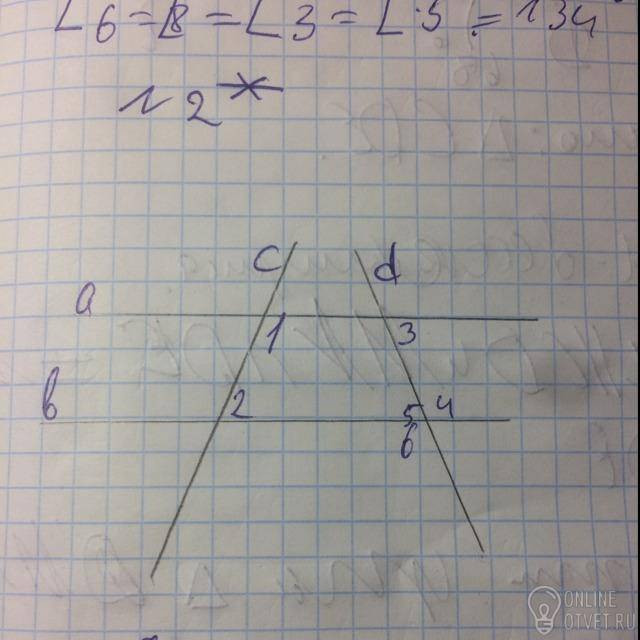 ∠6=∠8=∠3=∠5=134°
N2*
c d
a
1 3
b 2 5 4
6
ONLINE
OTVET.RU